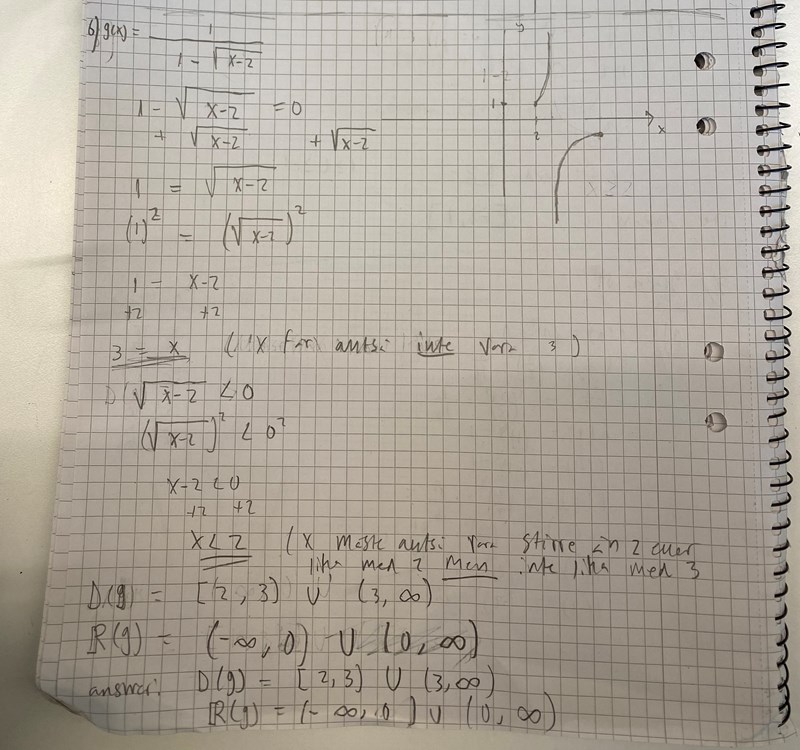 6) g(x) = 1 / (1 - √(x-2))
1 - √(x-2) = 0
+ √(x-2) + √(x-2)
1 = √(x-2)
(1)² = (√(x-2))²
1 = x-2
+2 +2
3 = x (x får alltså inte vara 3)
√(x-2) < 0
(√(x-2))² < 0²
x-2 < 0
+2 +2
x < 2 (x måste alltså vara större än 2 eller
lika med 2 men inte lika med 3
D(g) = [2, 3) ∪ (3, ∞)
R(g) = (-∞, 0) ∪ (0, ∞)
answer: D(g) = [2,3) ∪ (3,∞)
R(g) = (-∞, 0) ∪ (0, ∞)
y
1
2
x